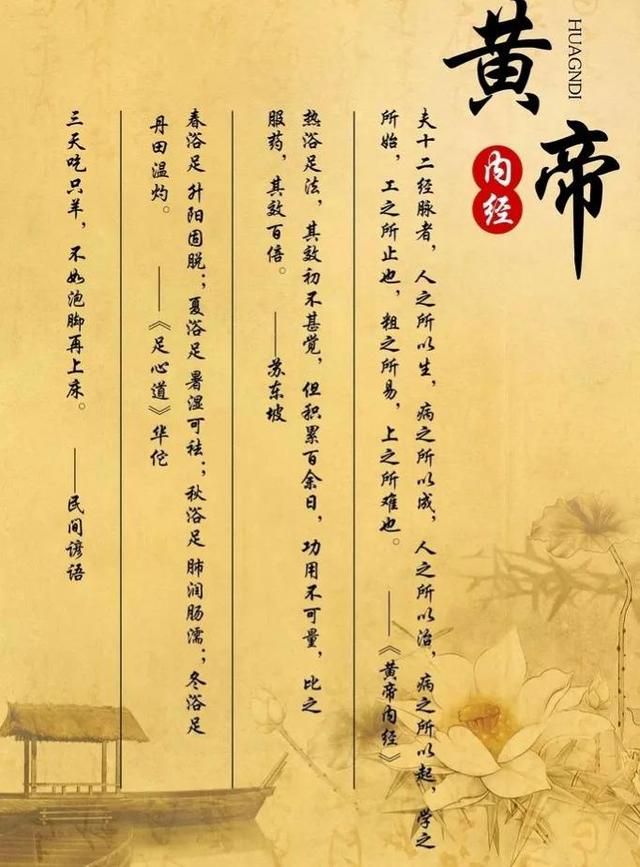 黄帝
HUAGNDI
内经
夫十二经脉者，人之所以生，病之所以成，人之所以治，病之所以起，学之
所始，工之所止也，粗之所易，上之所难也。
——《黄帝内经》
热浴足法，其效初不甚觉，但积累百余日，功用不可量，比之
服药，其效百倍。
——苏东坡
春浴足 升阳固脱；夏浴足 暑湿可祛；秋浴足 肺润肠濡；冬浴足
丹田温灼。
——《足心道》华佗
三天吃只羊，不如泡脚再上床。
——民间谚语